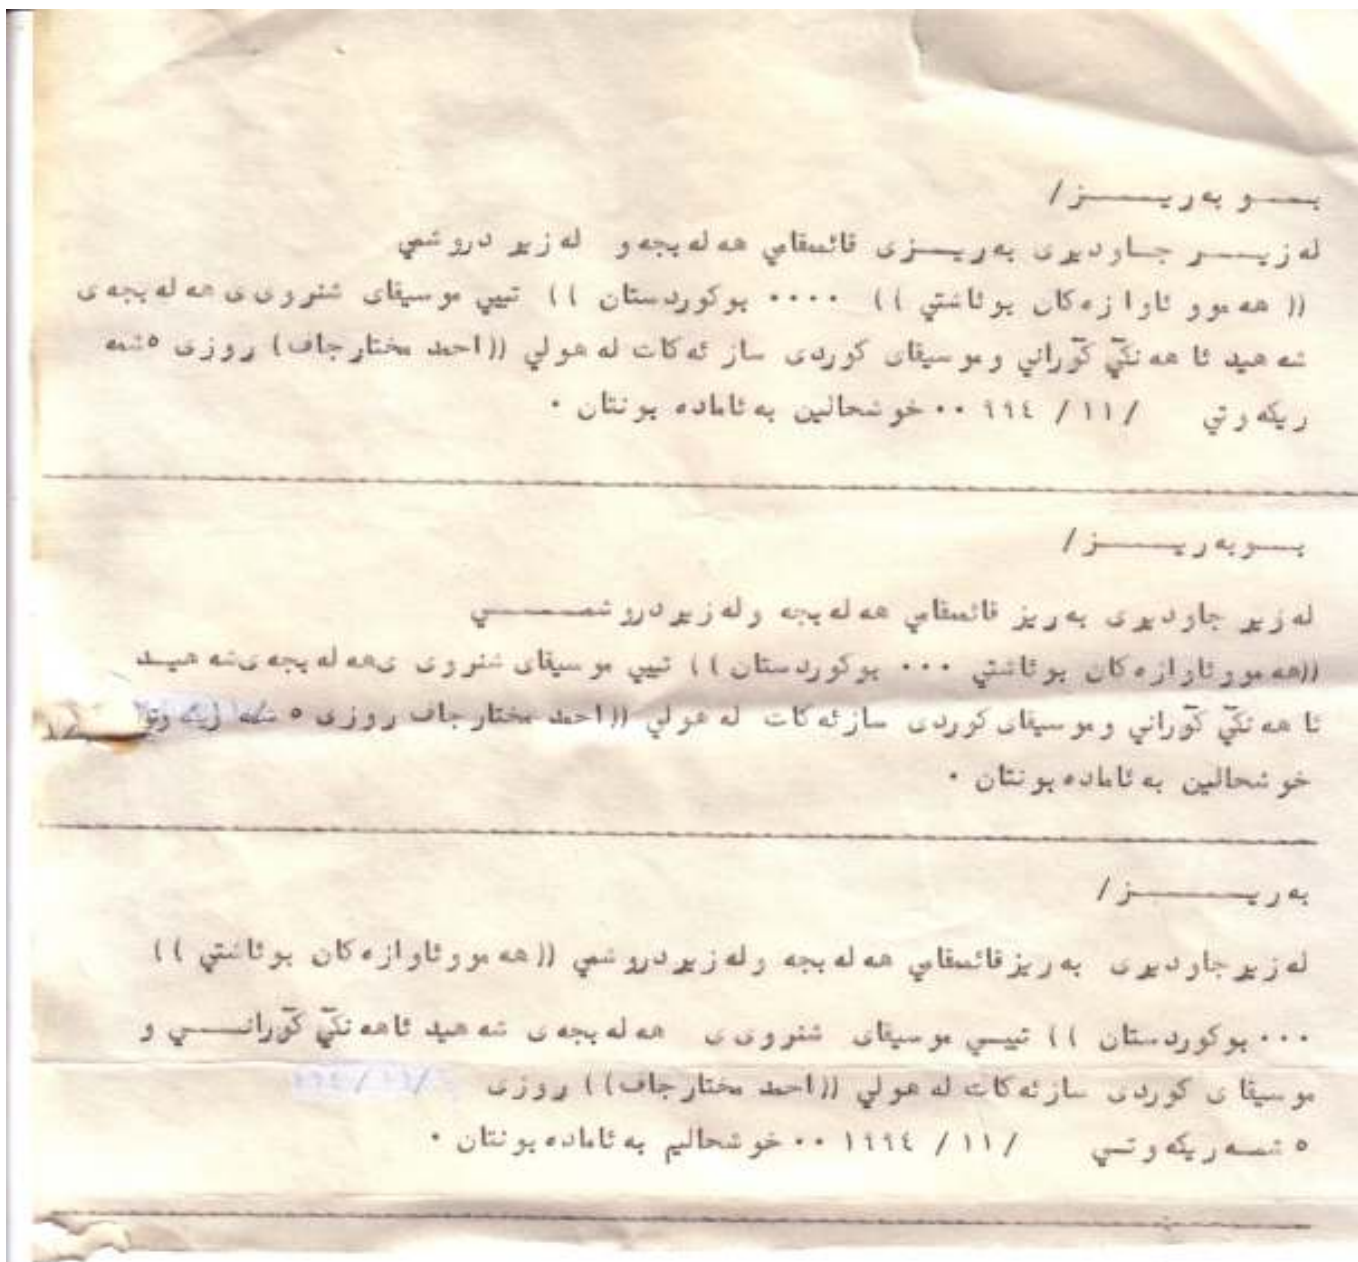 بـــو بەریــــــز/
لەزیــــر جـاودیری بەریــــزی قائمقامي هەلەبجەو لەزیر دروشمي
(( هەموو ئاوازەکان بوئاشتي )) ٠٠٠٠ بوکوردستان )) تیپي موسیقای شنرویی هەلەبجەی
شەهید ئاهەنگي گوراني وموسیقای کوردی ساز ئەکات لەهولي ((احمد مختارجاف) روزی ٥شمە
ریکەوتي / ١١/ ٩٩٤ ٠٠ خوشحالین بەئامادەبونتان ٠
بـــوبەریـــــــز/
لەزیر جاودیری بەریز قائمقامي هەلەبجە ولەزیردروشمــــــــي
((هەموو ئاوازەکان بوئاشتي ٠٠٠ بوکوردستان )) تیپي موسیقای شنروی یهەلەبجەی شەهیـد
ئاهەنگي گوراني وموسیقای کوردی سازئەکات لەهولي ((احمد مختارجاف روزی ٥ شمە
خوشحالین بەئامادەبونتان ٠
بەریــــــــز/
لەزیرجاودیری بەریزقائمقامي هەلەبجە ولەزیردروشمي ((هەموو ئاوازەکان بوئاشتي ))
٠٠٠ بوکوردستان )) تیپــي موسیقای شنرویی هەلەبجەی شەهید ئاهەنگي گورانـــــي و
موسیقا ی کوردی سازئەکات لەهولي ((احمد مختارجاف)) روزی
٥ شمــەریکەوتــي / ١١/ ١٩٩٤ ٠٠ خوشحالیم بەئامادەبونتان ٠